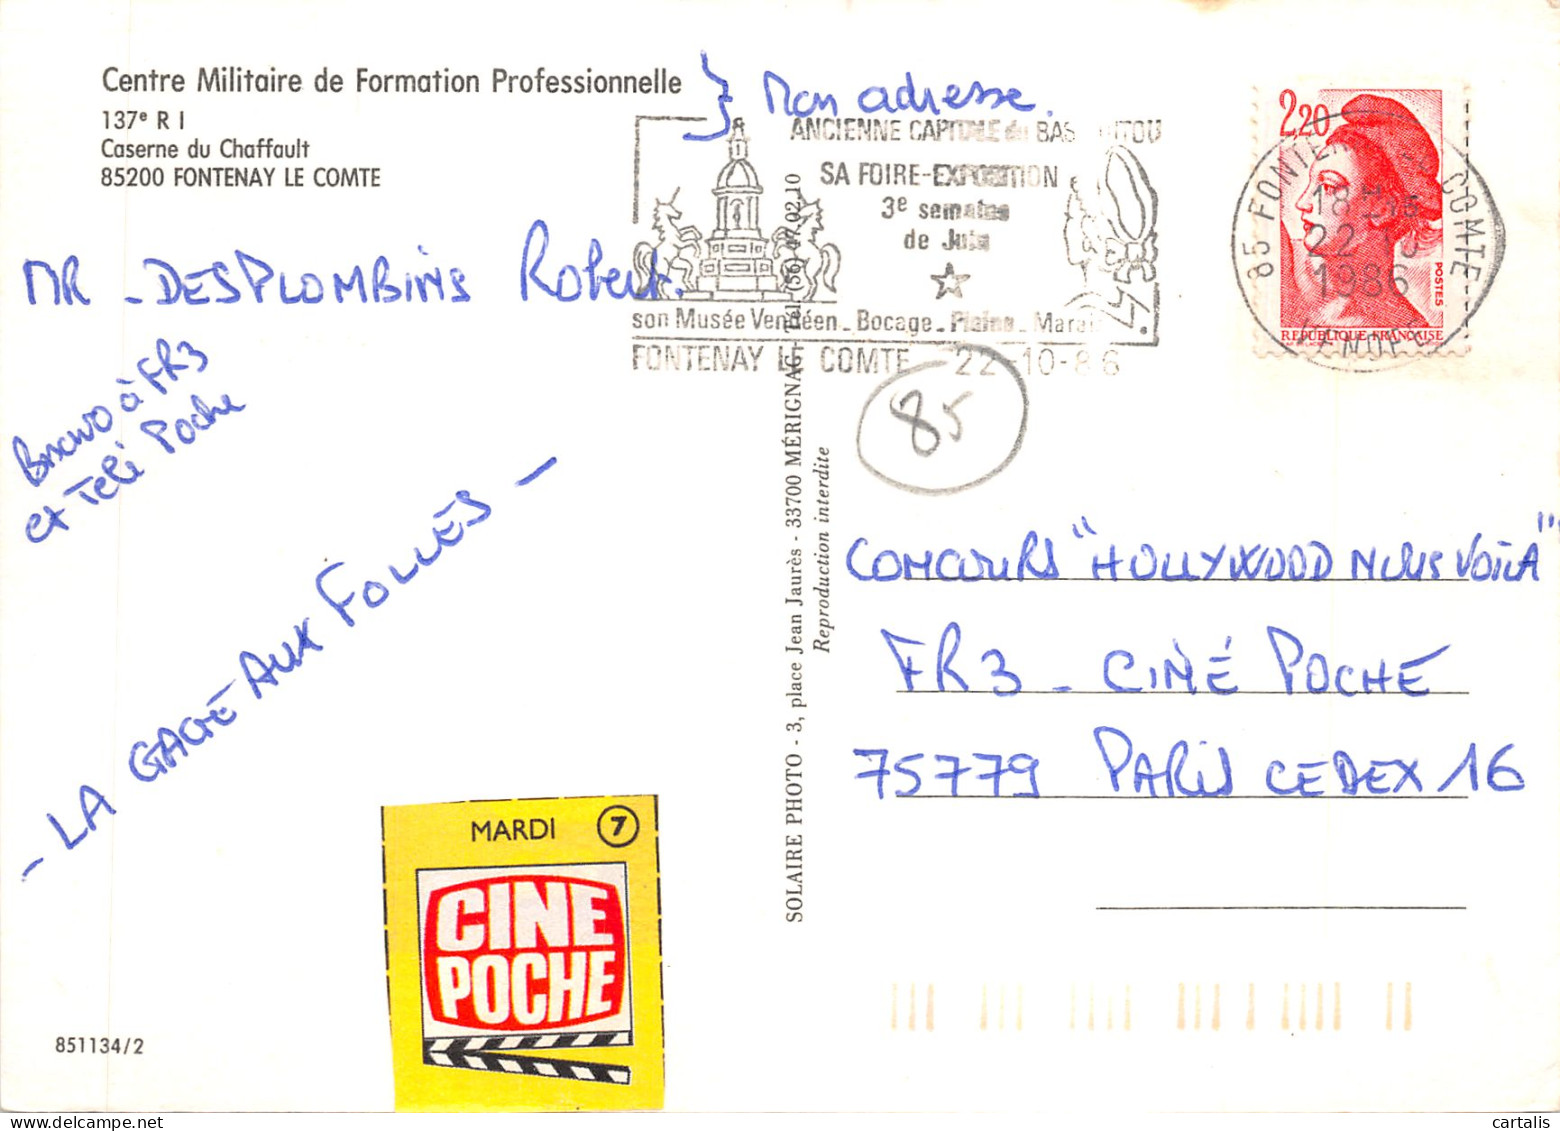 Centre Militaire de Formation Professionnelle
137e R I
Caserne du Chaffault
85200 FONTENAY LE COMTE
Mon adresse.
MR - DESPLOMBINS Robert.
Bravo à FR3
et Télé Poche
- LA CAGE AUX FOLLES -
MARDI 7
CINE
POCHE
851134/2
ANCIENNE CAPITALE du BAS POITOU
SA FOIRE-EXPOSITION
3e semaine
de Juin
son Musée Vendéen - Bocage - Plaine - Marais
FONTENAY LE COMTE 22-10-86
SOLAIRE PHOTO - 3, place Jean Jaurès - 33700 MÉRIGNAC - Tél. (56) 47.02.10
Reproduction interdite
2,20
POSTES
REPUBLIQUE FRANÇAISE
85 FONTENAY LE COMTE
22-10
1986
VENDEE
85
CONCOURS "HOLLYWOOD NOUS VOILA"
FR3 - CINÉ POCHE
75779 PARIS CEDEX 16
cartalis